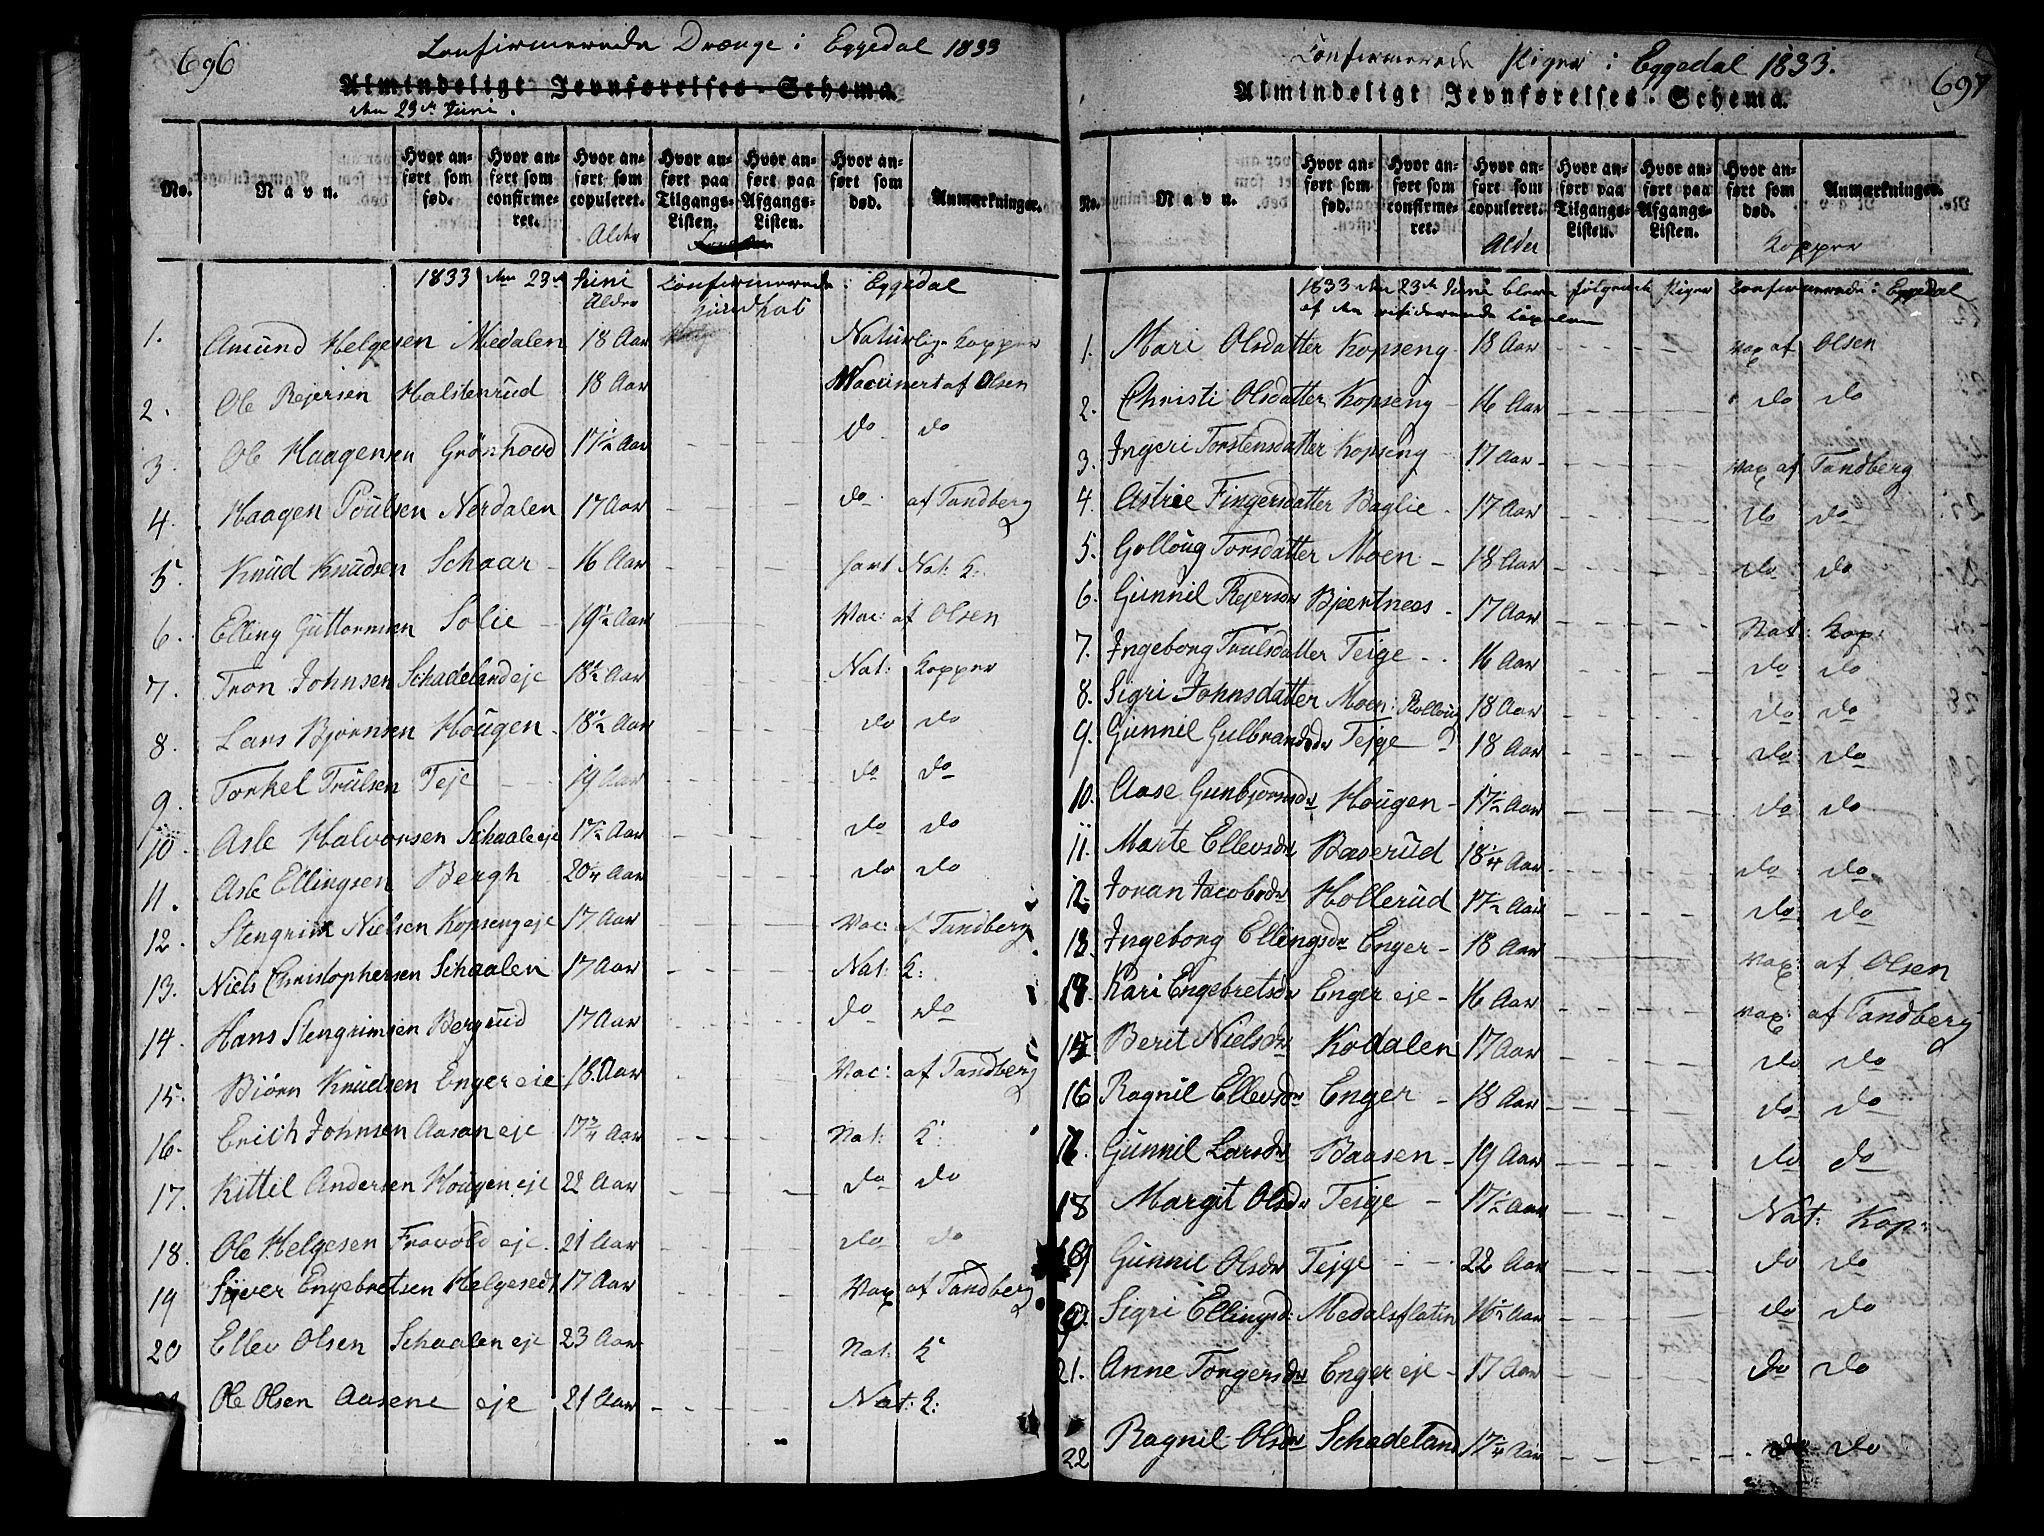 696
Confirmerede Drænge i Eggedal 1833
Almindeligt Jevnførelses-Schema.
den 23de Juni.
No. Navn. Hvor anført som fød. Hvor anført som confirmeret. Hvor anført som copuleret. Hvor anført paa Tilgangs-Listen. Hvor anført paa Afgangs-Listen. Hvor anført som død. Anmærkninger.
Alder
1833 den 23de Juni Confirmerede i Eggedal
Alder
1. Amund Helgesen Medalen 18 Aar Naturlige Kopper
2. Ole Rejersen Halstenrud 18 Aar Vaccinert af Olsen
3. Ole Haagensen Grönhovd 17½ Aar do do
4. Haagen Poulsen Nordalen 17 Aar do af Tandberg
5. Knud Knudsen Schaar 16 Aar havt Nat: K:
6. Elling Guttormsen Solie 19½ Aar Vac: af Olsen
7. Tron Johnsen Schadeland eje 18½ Aar Nat: Kopper
8. Lars Bjørnsen Hougen 18½ Aar do do
9. Torkel Trulsen Teje 19 Aar do do
10 Asle Halvorsen Schaale eje 17½ Aar do do
11. Asle Ellingsen Bergh 20¼ Aar do do
12. Stengrim Nielsen Kopseng eje 17 Aar Vac: af Tandberg
13. Niels Christophersen Schaalen 17 Aar Nat: K:
14. Hans Stengrimsen Bergrud 17 Aar do do
15. Biörn Knudsen Enger eje 18 Aar Vac: af Tandberg
16. Erich Johnsen Aasan eje 17¾ Aar Nat: K:
17. Kittil Andersen Hougen eje 22 Aar do do
18. Ole Helgesen Fravold eje 21 Aar do do
19 Syver Engebretsen Helgesedt 17 Aar Vax af Tandberg
20 Ellev Olsen Schaalen eje 23 Aar Nat: K
21 Ole Olsen Aasene eje 21 Aar Nat: K:
697
Confirmerede Piger i Eggedal 1833.
Almindeligt Jevnførelses-Schema.
No. Navn. Hvor anført som fød. Hvor anført som confirmeret. Hvor anført som copuleret. Hvor anført paa Tilgangs-Listen. Hvor anført paa Afgangs-Listen. Hvor anført som død. Anmærkninger.
Alder Kopper
1833 den 23de Juni bleve følgende Piger Confirmerede i Eggedal
af den residerende Capelan
1. Mari Olsdatter Kopseng 18 Aar Vax af Olsen
2. Christi Olsdatter Kopseng 16 Aar do do
3. Ingeri Torstensdatter Kopseng 17 Aar Vax af Tandberg
4. Astrie Fingersdatter Baglie 17 Aar do do
5. Golloug Torsdatter Moen 18 Aar do do
6. Gunnil Rejersdr Bjertnees 17 Aar Nat: Kop:
7. Ingeborg Trulsdatter Teige 16 Aar do do
8. Sigri Johnsdatter Moen: Rolloug 18 Aar do do
9. Gunnil Gulbrandsdr Tejge 18 Aar do do
10. Aase Gunbjørnsdr Hougen 17½ Aar do do
11. Marte Ellevsdr Baserud 18¼ Aar do do
12. Joran Jacobsdr Hollerud 17½ Aar do do
13. Ingeborg Ellingsdr Enger 18 Aar Vax: af Olsen
14. Kari Engebretsdr Enger eje 16 Aar Vax: af Tandberg
15 Berit Nielsdr Kodalen 17 Aar do do
16 Ragnil Ellevsdr Enger 18 Aar do do
16. Gunnil Larsdr Baasen 19 Aar do do
18 Margit Olsdr Teige 17½ Aar Nat: Kop:
19 Gunnil Olsdr Tejge 22 Aar do do
20. Sigri Ellingsd: Medalsflatin 16½ Aar do do
21. Anne Torgersdr Enger eje 17 Aar do do
22 Ragnil Olsdr Schadeland 17¼ Aar do do